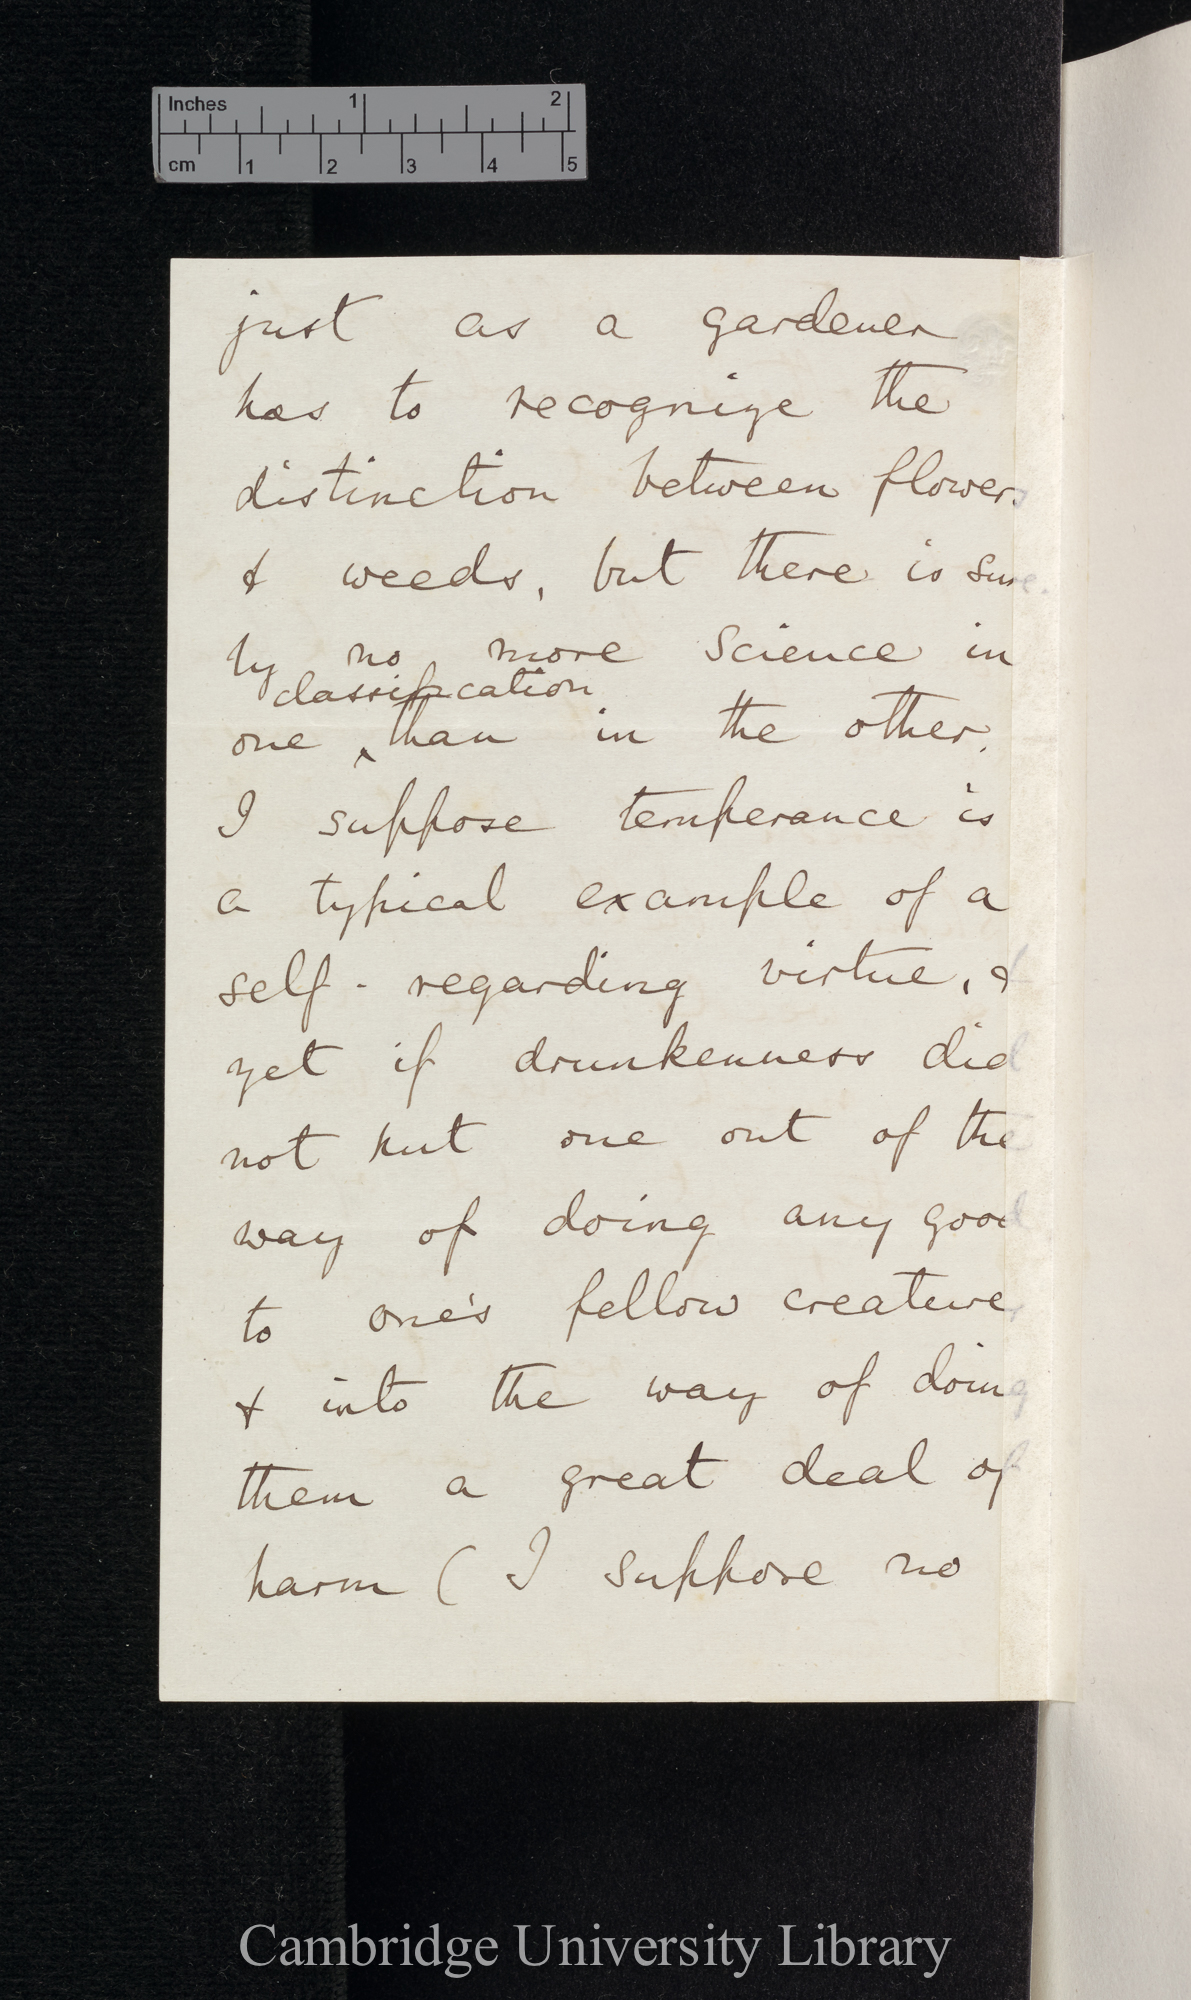 Inches 1 2
cm 1 2 3 4 5
just as a gardener
has to recognize the
distinction between flowers
& weeds, but there is sure-
ly no more science in
classification
one ‸ than in the other.
I suppose temperance is
a typical example of a
self-regarding virtue, &
yet if drunkenness did
not put one out of the
way of doing any good
to one's fellow creatures
& into the way of doing
them a great deal of
harm ( I suppose no
Cambridge University Library